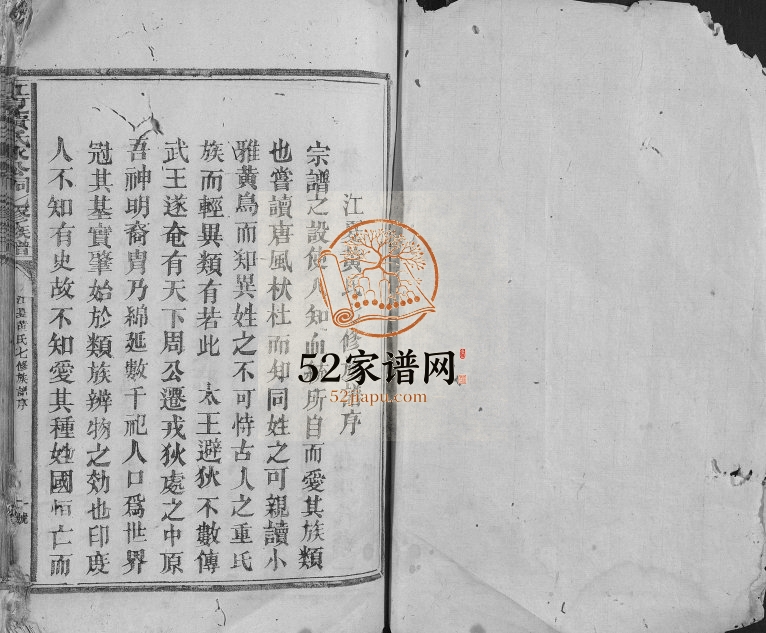 江夏黃氏七修族譜序
宗譜之設使人知血所自而愛其族類
也嘗讀唐風杕杜而知同姓之可親讀小
雅黃鳥而知異姓之不可恃古人之重氏
族而輕異類有若此 太王避狄不數傳
武王遂奄有天下周公遷戎狄處之中原
吾神明裔冑乃綿延數千祀人口爲世界
冠其基實肇始於類族辨物之効也印度
人不知有史故不知愛其種姓國恒亡而
族譜
江夏黃氏七修族譜序
一號
52家谱网
52jiapu.com